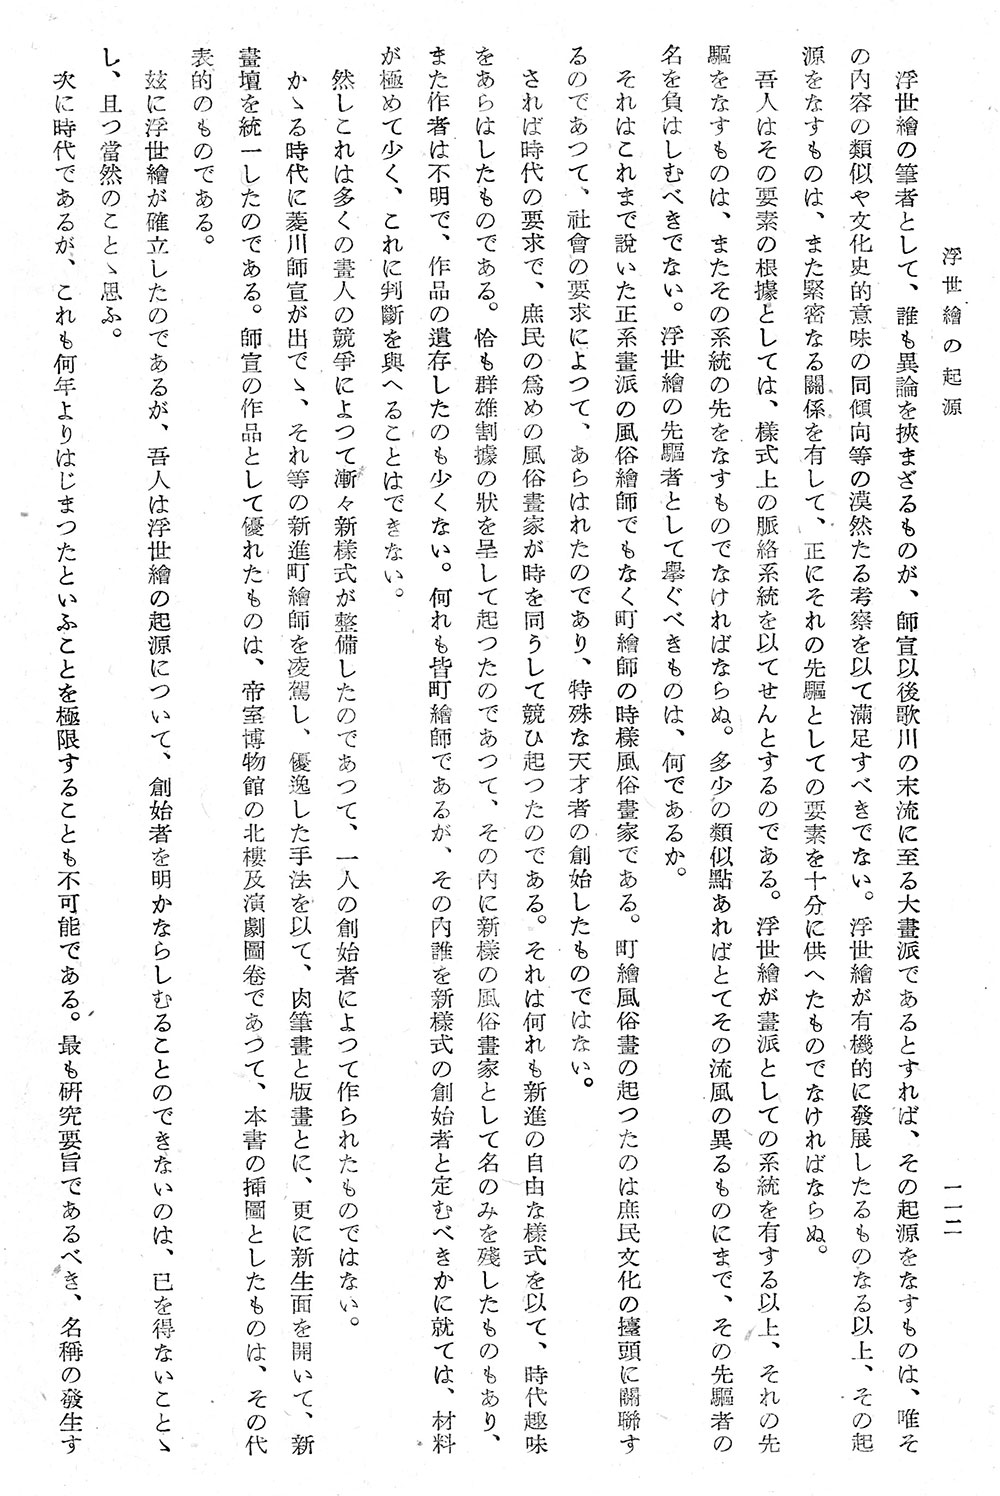 浮世繪の起源
一一二
浮世繪の筆者として、誰も異論を挾まざるものが、師宣以後歌川の末流に至る大畫派であるとすれば、その起源をなすものは、唯そ
の内容の類似や文化史的意味の同傾向等の漠然たる考察を以て滿足すべきでない。浮世繪が有機的に發展したるものなる以上、その起
源をなすものは、また緊密なる關係を有して、正にそれの先驅としての要素を十分に供へたものでなければならぬ。
吾人はその要素の根據としては、樣式上の脈絡系統を以てせんとするのである。浮世繪が畫派としての系統を有する以上、それの先
驅をなすものは、またその系統の先をなすものでなければならぬ。多少の類似點あればとてその流風の異るものにまで、その先驅者の
名を負はしむべきでない。浮世繪の先驅者として擧ぐべきものは、何であるか。
それはこれまで說いた正系畫派の風俗繪師でもなく町繪師の時樣風俗畫家である。町繪風俗畫の起つたのは庶民文化の擡頭に關聯す
るのであつて、社會の要求によつて、あらはれたのであり、特殊な天才者の創始したものではない。
されば時代の要求で、庶民の爲めの風俗畫家が時を同うして競ひ起つたのである。それは何れも新進の自由な樣式を以て、時代趣味
をあらはしたものである。恰も群雄割據の狀を呈して起つたのであつて、その内に新樣の風俗畫家として名のみを殘したものもあり、
また作者は不明で、作品の遺存したのも少くない。何れも皆町繪師であるが、その内誰を新樣式の創始者と定むべきかに就ては、材料
が極めて少く、これに判斷を與へることはできない。
然しこれは多くの畫人の競爭によつて漸々新樣式が整備したのであつて、一人の創始者によつて作られたものではない。
かゝる時代に菱川師宣が出でゝ、それ等の新進町繪師を凌駕し、優逸した手法を以て、肉筆畫と版畫とに、更に新生面を開いて、新
畫壇を統一したのである。師宣の作品として優れたものは、帝室博物館の北樓及演劇圖卷であつて、本書の揷圖としたものは、その代
表的のものである。
玆に浮世繪が確立したのであるが、吾人は浮世繪の起源について、創始者を明かならしむることのできないのは、已を得ないことゝ
し、且つ當然のことゝ思ふ。
次に時代であるが、これも何年よりはじまつたといふことを極限することも不可能である。最も硏究要旨であるべき、名稱の發生す